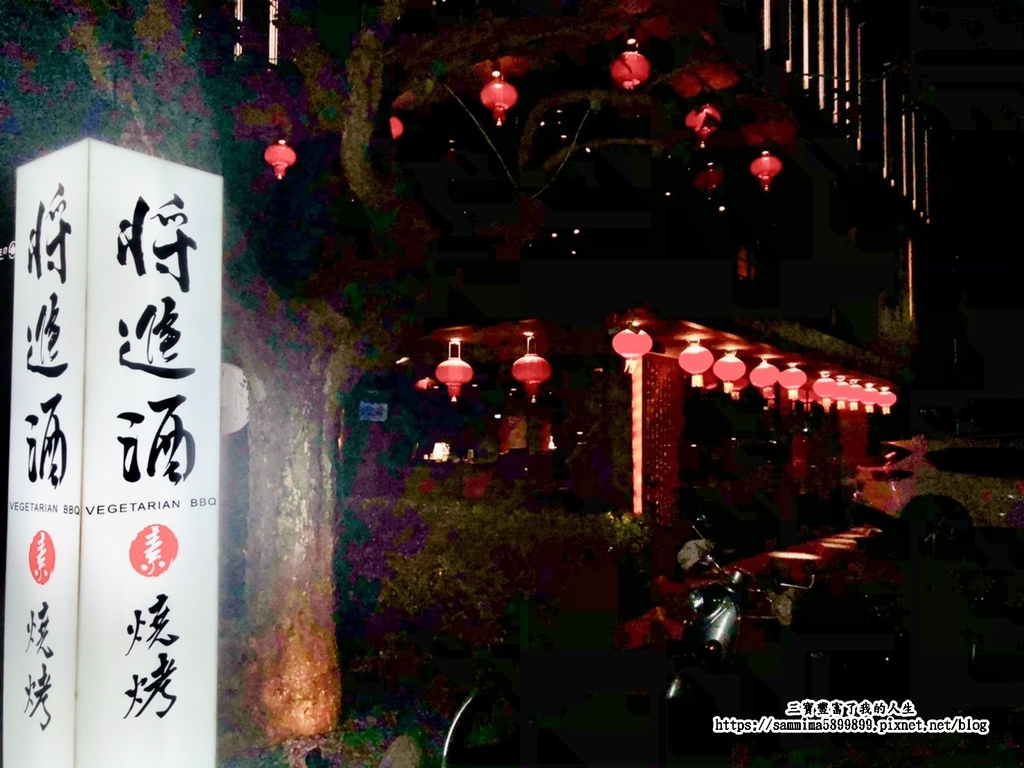 將進酒
VEGETARIAN BBQ
素
燒烤
將進酒
VEGETARIAN BBQ
素
燒烤
三寶豐富了我的人生
https://sammima5899899.pixnet.net/blog